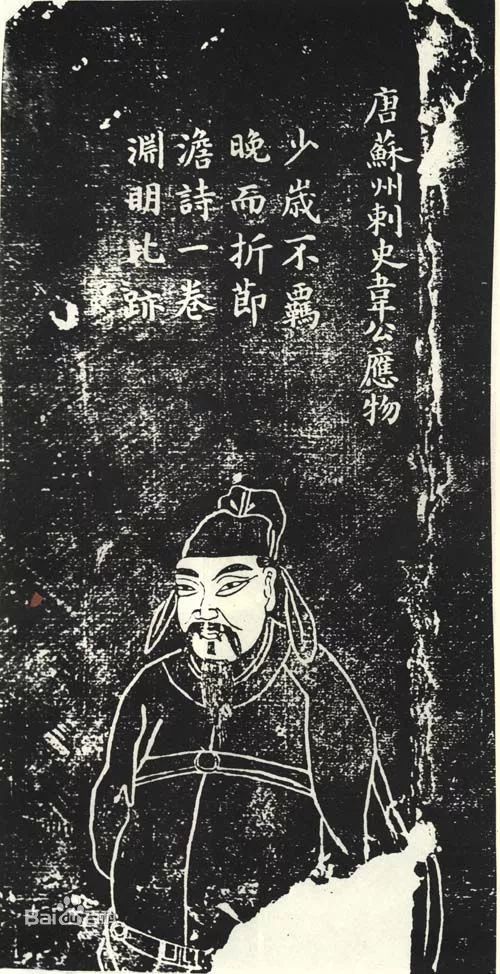 唐蘇州刺史韋公應物
少歲不羈
晚而折節
澹詩一卷
淵明比跡
Bai百科